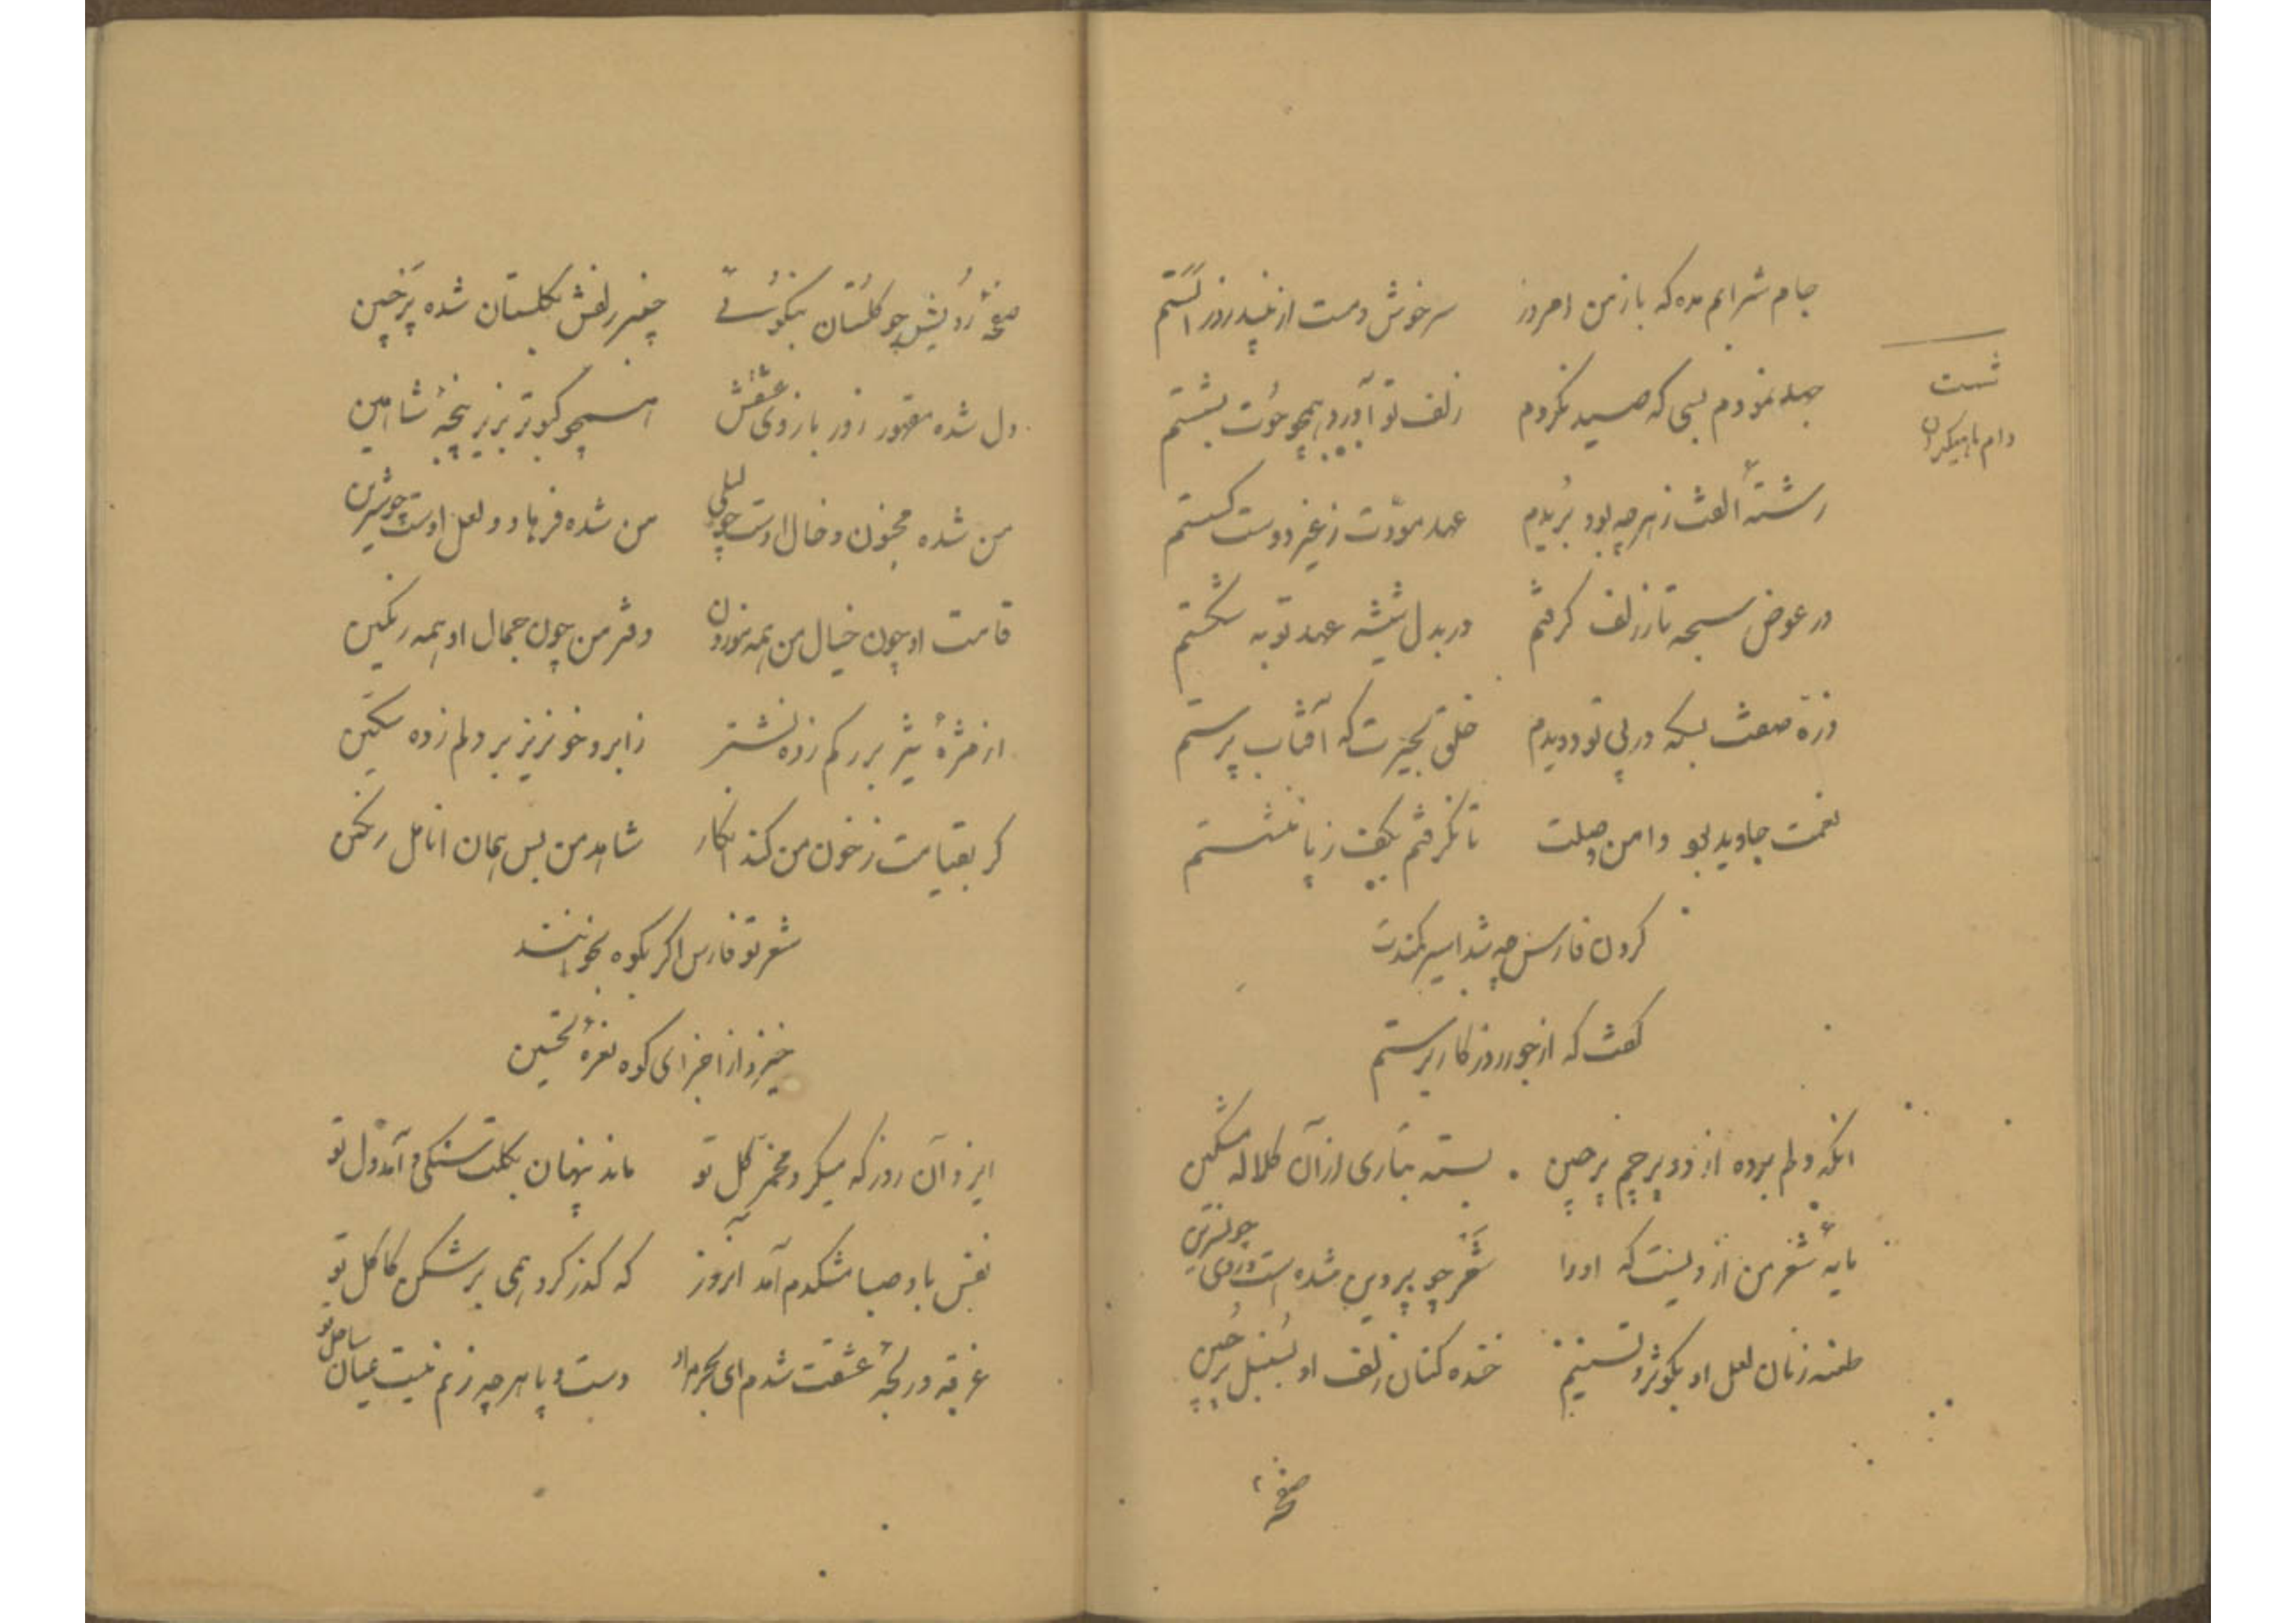 جام شرابم مده که باز من امروز سرخوش و مست از نبید روز الستم
شست
جهد نمودم بسی که صید نکردم زلف تو آورد همچو حوت بشستم
دام ماهیگیران
رشتهٔ الفت ز هر چه بود بریدم عهد مودّت ز غیر دوست گسستم
در عوض سبحه تار زلف گرفتم در بدل شیشه عهد توبه شکستم
ذرّه صفت بسکه در پی تو دویدم خلق بحیرت که آفتاب پرستم
نعمت جاوید بو دامن وصلت تا نگرفتم بکف ز پا ننشستم
کردن فارس چه شد اسیر کمندت
گفت که از جور روزگار برستم
انکه دلم برده از دو پرچم پرچین بسته بتاری از آن کلاله مشکین
مایهٔ شعر من از دلیست که او را شعر چو پروین شده است و روی چو نسرین
طعنه زنان لعل او بکوثر و تسنیم خنده کنان زلف او بسنبل پرچین
صفحهٔ
صفحهٔ رویش چو گلستان بنکوئی چنبر زلفش بگلستان شده پرچین
دل شده مقهور زور بازوی عشقش همچو کبوتر بزیر پنجهٔ شاهین
من شده مجنون و خال اوست چو لیلی من شده فرهاد و لعل اوست چو شیرین
قامت او چون خیال من همه موزون دفتر من چون جمال او همه رنگین
از مژهٔ تیز بر رگم زده نشتر ز ابرو خونریز بر دلم زده سکین
گر بقیامت ز خون من کند انکار شاهد من بس همان انامل رنگین
شعر تو فارس اگر بکوه بخوانند
خیزد از اجزای کوه نعرهٔ تحسین
ایزد آن روز که میکرد مخمر گل تو ماند پنهان بگلت سنگی و آمد دل تو
نفس باد صبا مشکدم آمد امروز که گذر کرد همی بر شکن کاکل تو
غرقه در لجّهٔ عشقت شدم ای بحر مراد دست و پا هر چه زنم نیست عیان ساحل تو